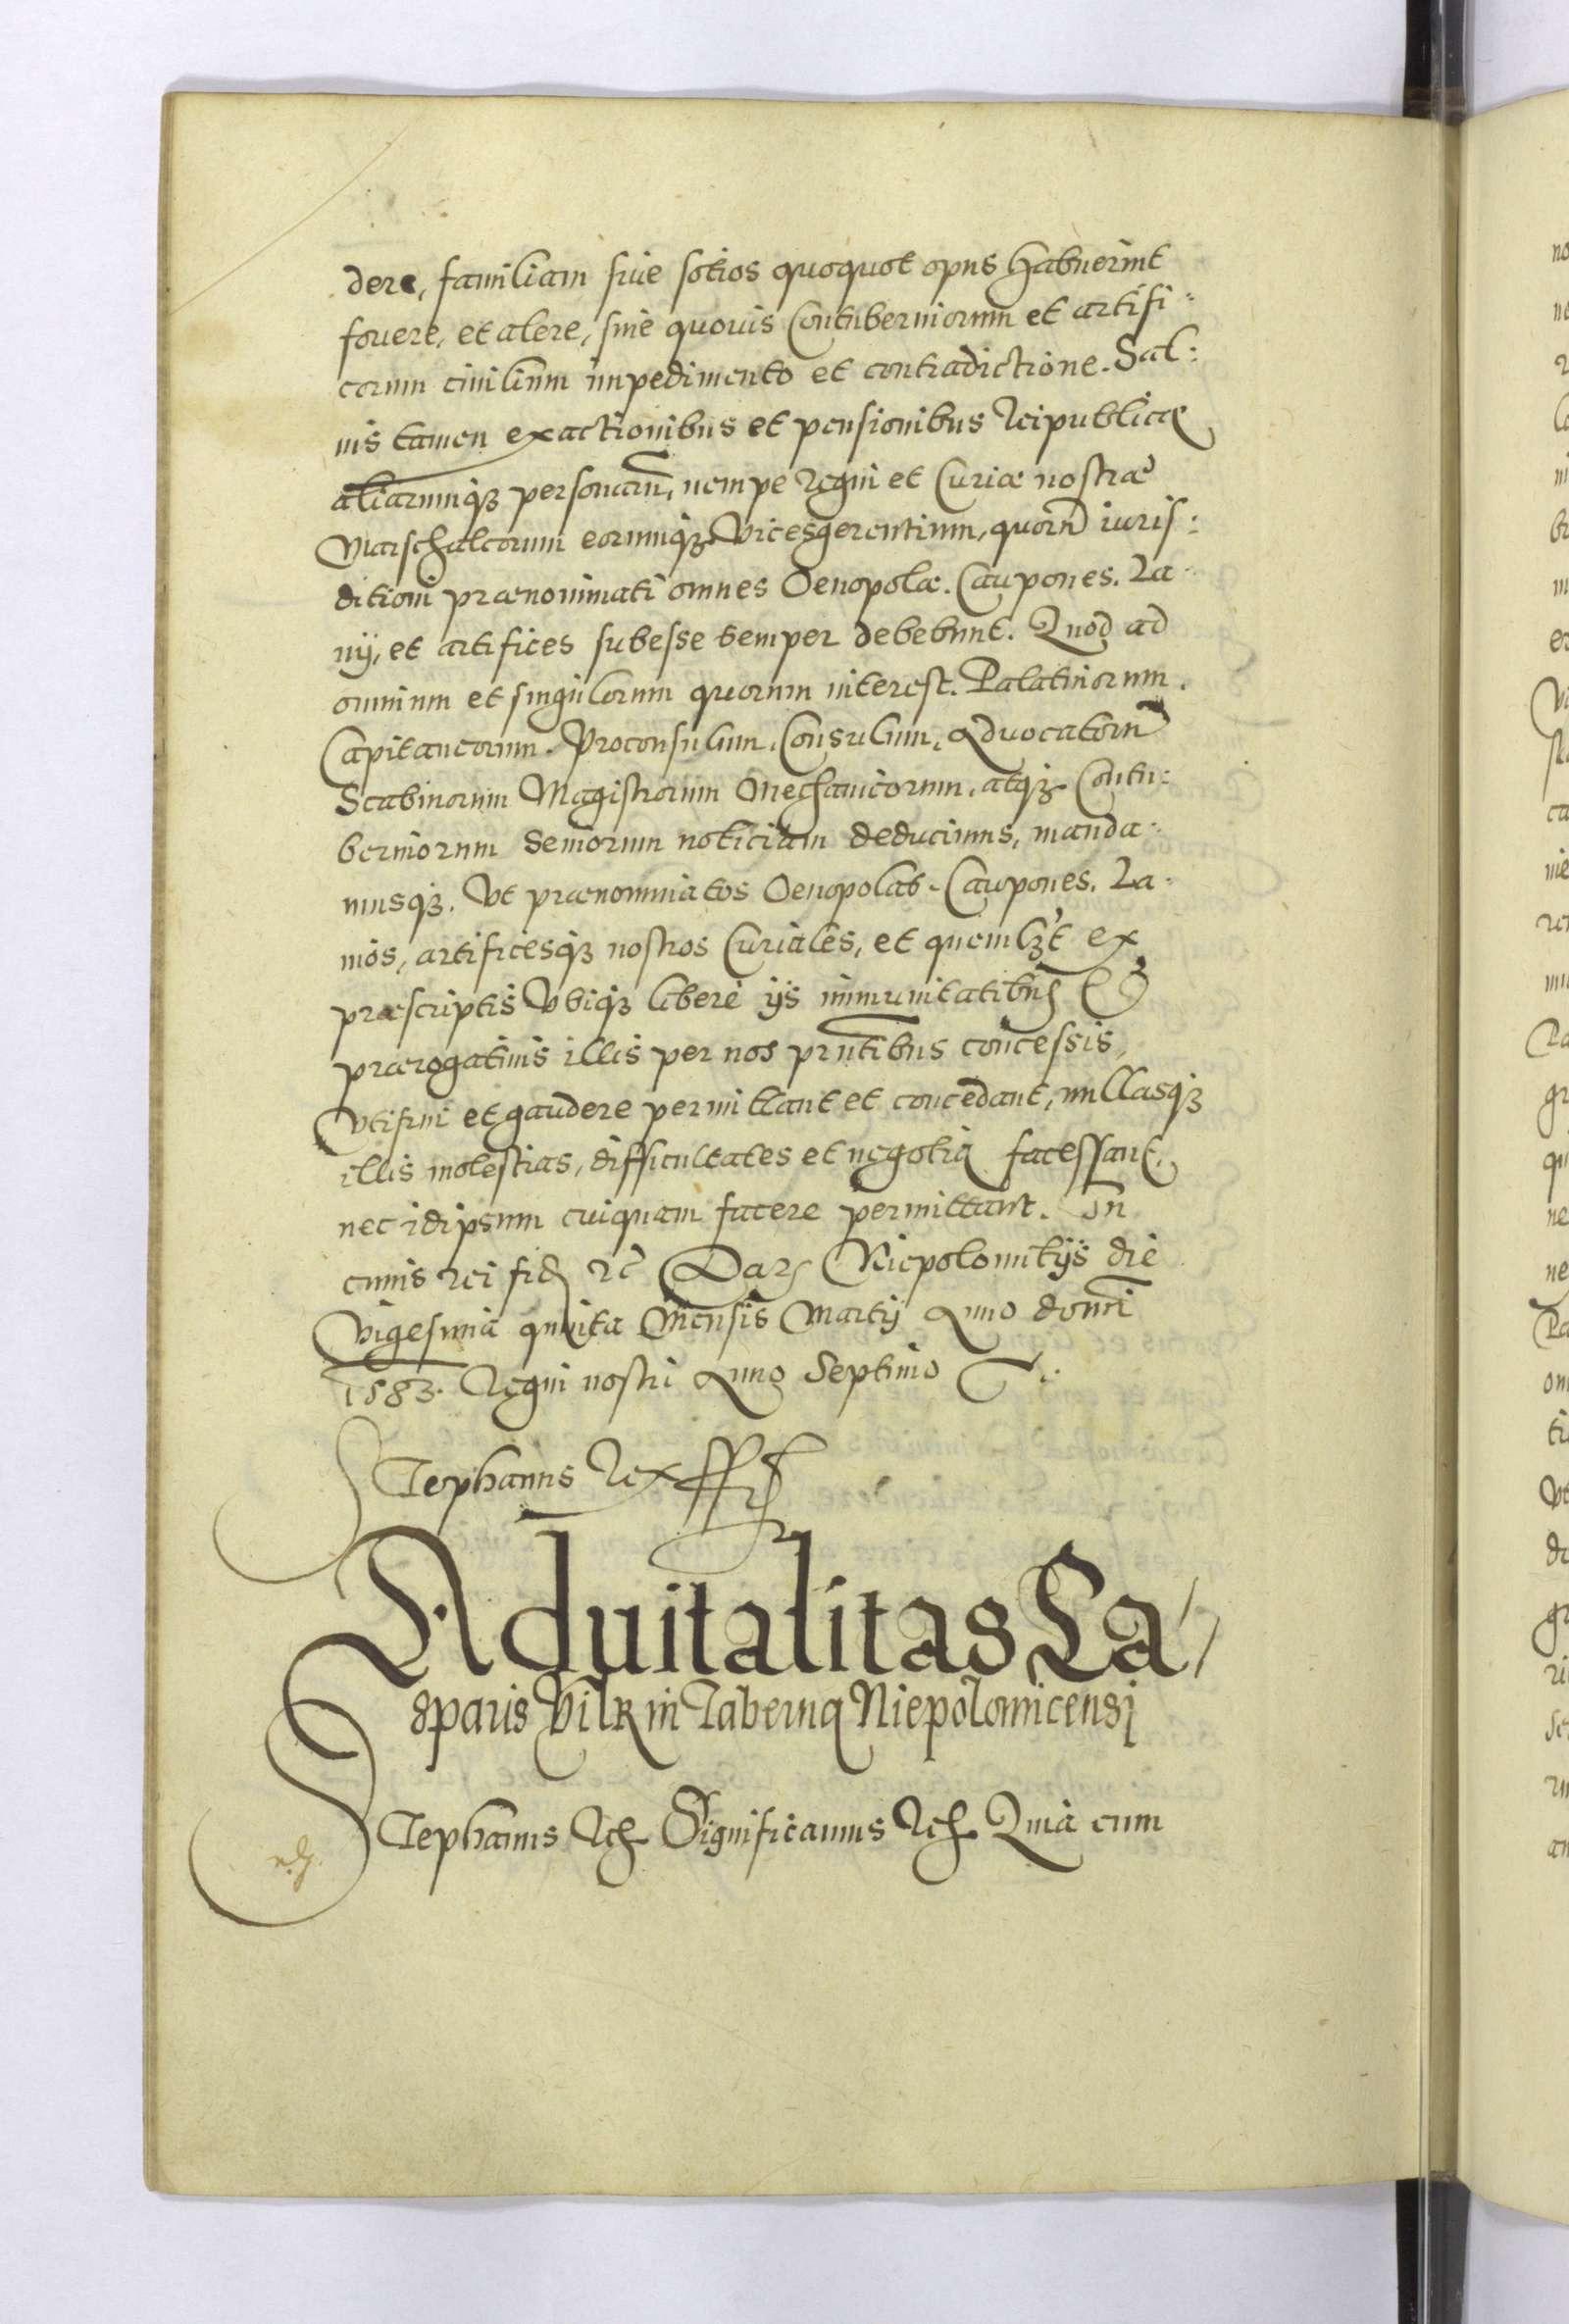 dere, familiam siue sotios quoquot opus habuerint
fouere, et alere, sine quouis Contuberniorum et artifi:
corum ciuilium impedimento et contradictione. Sal:
uis tamen exactionibus et pensionibus Reipublicæ
aliarumq₃ personarū, nempe Regni et Curiæ nostræ
Marschalcorum eorumq₃ Vicesgerentium, quorū iuris:
ditioni prænominati omnes Oenopolæ. Caupones. La:
nij, et artifices subesse semper debebunt. Quod ad
omnium et singulorum quorum interest. Palatinorum.
Capitaneorum. Proconsulum. Consulum, Aduocatorū
Scabinorum Magistrorum Mechanicorum, atq₃ Contu:
berniorum Seniorum noticiam deducimus, manda:
musq₃. Vt prænominatos Oenopolas. Caupones. La:
nios, artificesq₃ nostros Curiales, et quemlꝫt ex
præscriptis Vbiq₃ liberè ijs immunitatibus &
prærogatiuis illis per nos prn̄tibus concessis,
Vti frui et gaudere permittant et concedant, nullasq₃
illis molestias, difficultates et negotia facessant,
nec idipsum cuiquam facere permittant. In
cuius rei fid ꝛc̃ Datꝭ Niepolomitijs die
Vigesima quinta Mensis Martij Anno domī
1583. Regni nostri Anno Septimo
Stephanus Rex
Aduitalitas Ca/
sparis Vilk in Taberna Niepolomicensi
Stephanus Rch Significamus Rch Quia cum